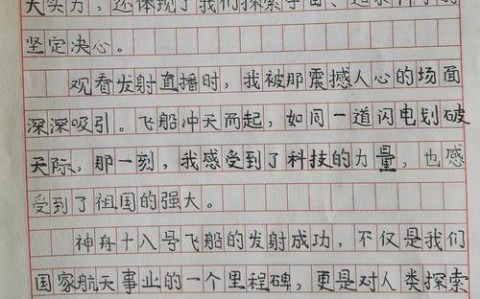 大实力，还体现了我们探索宇宙、追求科学的
坚定决心。
观看发射直播时，我被那震撼人心的场面
深深吸引。飞船冲天而起，如同一道闪电划破
天际，那一刻，我感受到了科技的力量，也感
受到了祖国的强大。
神舟十八号飞船的发射成功，不仅是我们
国家航天事业的一个里程碑，更是对人类探索